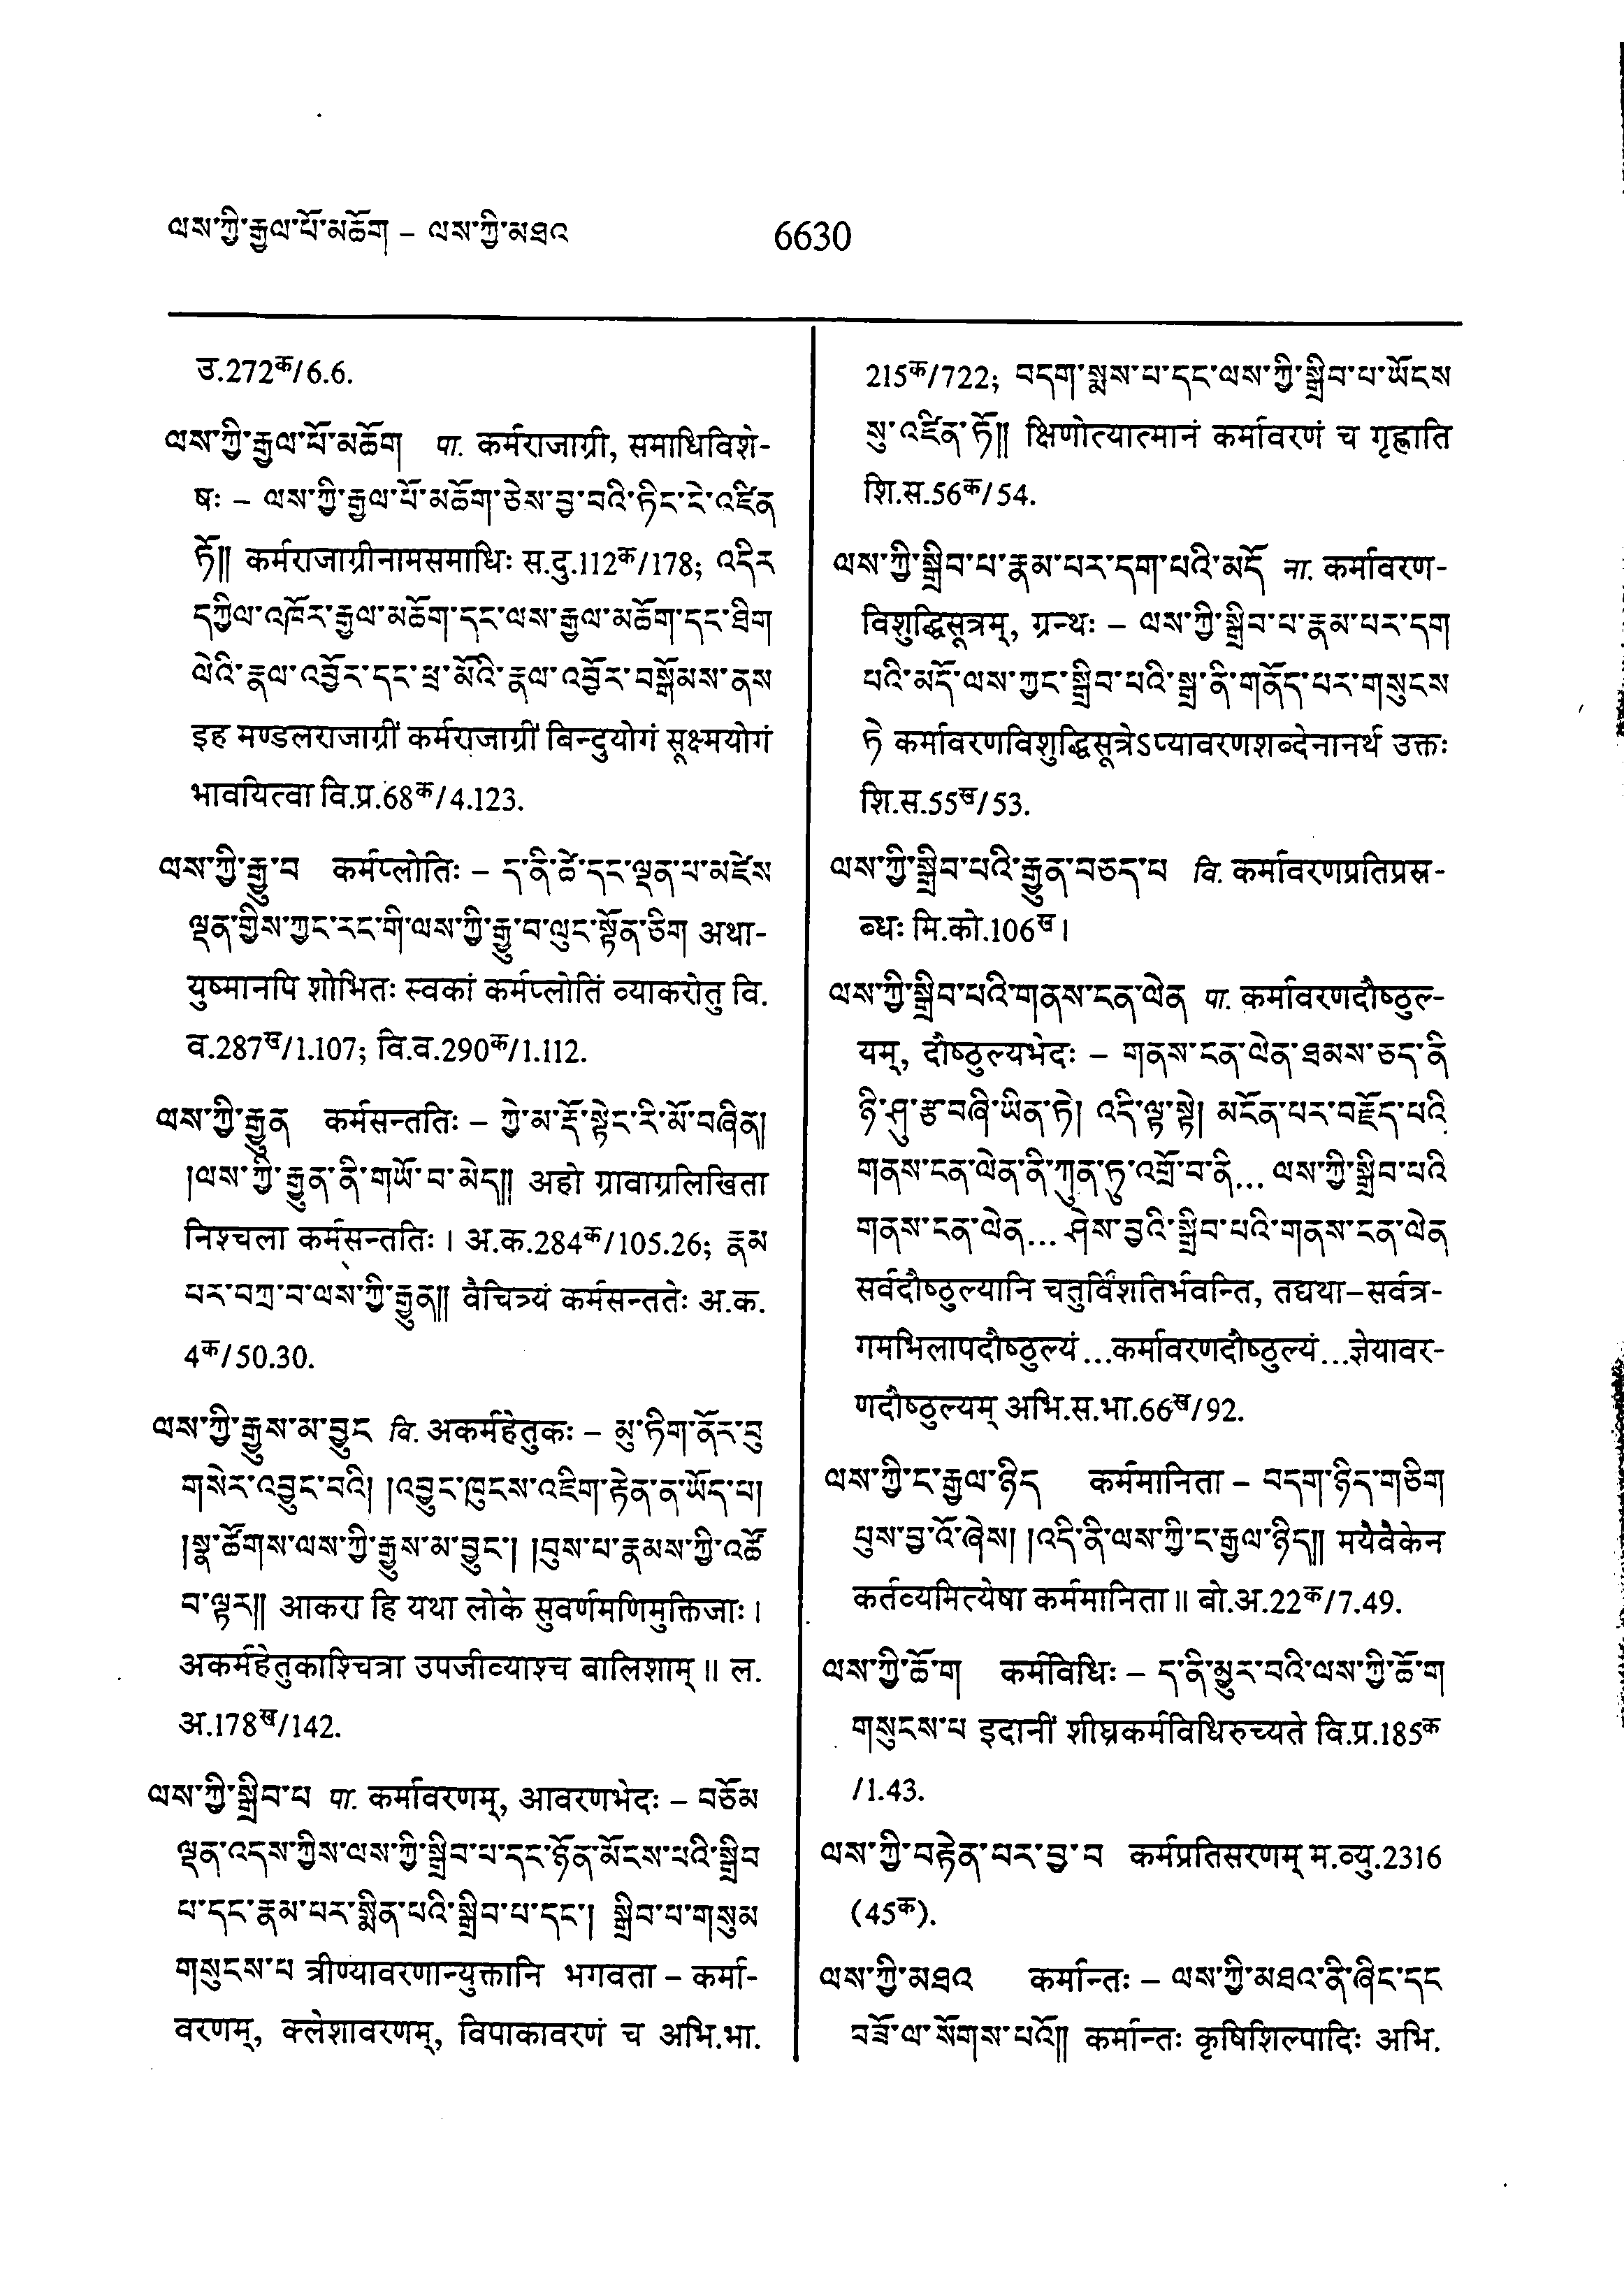 ལས་ཀྱི་རྒྱལ་པོ་མཆོག – ལས་ཀྱི་མཐའ
6630
उ.272क/6.6.
ལས་ཀྱི་རྒྱལ་པོ་མཆོག पा. कर्मराजाग्री, समाधिविशे-
षः – ལས་ཀྱི་རྒྱལ་པོ་མཆོག་ཅེས་བྱ་བའི་ཏིང་ངེ་འཛིན
ཏོ༎ कर्मराजाग्रीनामसमाधिः स.दु.112क/178; འདིར
དཀྱིལ་འཁོར་རྒྱལ་མཆོག་དང་ལས་རྒྱལ་མཆོག་དང་ཐིག
ལེའི་རྣལ་འབྱོར་དང་ཕྲ་མོའི་རྣལ་འབྱོར་བསྒོམས་ནས
इह मण्डलराजाग्रीं कर्मराजाग्रीं विन्दुयोगं सूक्ष्मयोगं
भावयित्वा वि.प्र.68क/4.123.
ལས་ཀྱི་རྒྱུ་བ कर्मप्लोतिः – ད་ནི་ཚེ་དང་ལྡན་པ་མཛེས
ལྡན་གྱིས་ཀྱང་རང་གི་ལས་ཀྱི་རྒྱུ་བ་ལུང་སྟོན་ཅིག अथा-
युष्मानपि शोभितः स्वकां कर्मप्लोतिं व्याकरोतु वि.
व.287ख/1.107; वि.व.290क/1.112.
ལས་ཀྱི་རྒྱུན कर्मसन्ततिः – ཀྱེ་མ་རྡོ་སྟེང་རི་མོ་བཞིན།
།ལས་ཀྱི་རྒྱུན་ནི་གཡོ་བ་མེད༎ अहो ग्रावाग्रलिखिता
निश्चला कर्मसन्ततिः । अ.क.284क/105.26; རྣམ
པར་བཀྲ་བ་ལས་ཀྱི་རྒྱུན༎ वैचित्र्यं कर्मसन्ततेः अ.क.
4क/50.30.
ལས་ཀྱི་རྒྱུས་མ་བྱུང वि. अकर्महेतुकः – མུ་ཏིག་ནོར་བུ
གསེར་འབྱུང་བའི། །འབྱུང་ཁུངས་འཇིག་རྟེན་ན་ཡོད་པ།
།སྣ་ཚོགས་ལས་ཀྱི་རྒྱུས་མ་བྱུང་། །བུས་པ་རྣམས་ཀྱི་འཚོ
བ་ལྟར༎ आकरा हि यथा लोके सुवर्णमणिमुक्तिजाः ।
अकर्महेतुकाश्चित्रा उपजीव्याश्च बालिशाम् ॥ ल.
अ.178ख/142.
ལས་ཀྱི་སྒྲིབ་པ पा. कर्मावरणम्, आवरणभेदः – བཅོམ
ལྡན་འདས་ཀྱིས་ལས་ཀྱི་སྒྲིབ་པ་དང་ཉོན་མོངས་པའི་སྒྲིབ
པ་དང་རྣམ་པར་སྨིན་པའི་སྒྲིབ་པ་དང་། སྒྲིབ་པ་གསུམ
གསུངས་པ त्रीण्यावरणान्युक्तानि भगवता – कर्मा-
वरणम्, क्लेशावरणम्, विपाकावरणं च अभि.भा.
215क/722; བདག་སྨས་པ་དང་ལས་ཀྱི་སྒྲིབ་པ་ཡོངས
སུ་འཛིན་ཏོ༎ क्षिणोत्यात्मानं कर्मावरणं च गृह्णाति
शि.स.56क/54.
ལས་ཀྱི་སྒྲིབ་པ་རྣམ་པར་དག་པའི་མདོ ना. कर्मावरण-
विशुद्धिसूत्रम्, ग्रन्थः – ལས་ཀྱི་སྒྲིབ་པ་རྣམ་པར་དག
པའི་མདོ་ལས་ཀྱང་སྒྲིབ་པའི་སྒྲ་ནི་གནོད་པར་གསུངས
ཏེ कर्मावरणविशुद्धिसूत्रेऽप्यावरणशब्देनानर्थ उक्तः
शि.स.55ख/53.
ལས་ཀྱི་སྒྲིབ་པའི་རྒྱུན་བཅད་པ वि. कर्मावरणप्रतिप्रस्र-
ब्धः मि.को.106ख ।
ལས་ཀྱི་སྒྲིབ་པའི་གནས་ངན་ལེན पा. कर्मावरणदौष्ठुल्-
यम्, दौष्ठुल्यभेदः – གནས་ངན་ལེན་ཐམས་ཅད་ནི
ཉི་ཤུ་རྩ་བཞི་ཡིན་ཏེ། འདི་ལྟ་སྟེ། མངོན་པར་བརྗོད་པའི
གནས་ངན་ལེན་ནི་ཀུན་ཏུ་འགྲོ་བ་ནི... ལས་ཀྱི་སྒྲིབ་པའི
གནས་ངན་ལེན... ཤེས་བྱའི་སྒྲིབ་པའི་གནས་ངན་ལེན
सर्वदौष्ठुल्यानि चतुर्विंशतिर्भवन्ति, तद्यथा–सर्वत्र-
गमभिलापदौष्ठुल्यं...कर्मावरणदौष्ठुल्यं...ज्ञेयावर-
णदौष्ठुल्यम् अभि.स.भा.66ख/92.
ལས་ཀྱི་ང་རྒྱལ་ཉིད कर्ममानिता – བདག་ཉིད་གཅིག
པུས་བྱ་འོ་ཞེས། །འདི་ནི་ལས་ཀྱི་ང་རྒྱལ་ཉིད༎ मयैवैकेन
कर्तव्यमित्येषा कर्ममानिता ॥ बो.अ.22क/7.49.
ལས་ཀྱི་ཆོ་ག कर्मविधिः – ད་ནི་མྱུར་བའི་ལས་ཀྱི་ཆོ་ག
གསུངས་པ इदानीं शीघ्रकर्मविधिरुच्यते वि.प्र.185क
/1.43.
ལས་ཀྱི་བརྟེན་པར་བྱ་བ कर्मप्रतिसरणम् म.व्यु.2316
(45क).
ལས་ཀྱི་མཐའ कर्मान्तः – ལས་ཀྱི་མཐའ་ནི་ཞིང་དང
བཟོ་ལ་སོགས་པའོ༎ कर्मान्तः कृषिशिल्पादिः अभि.